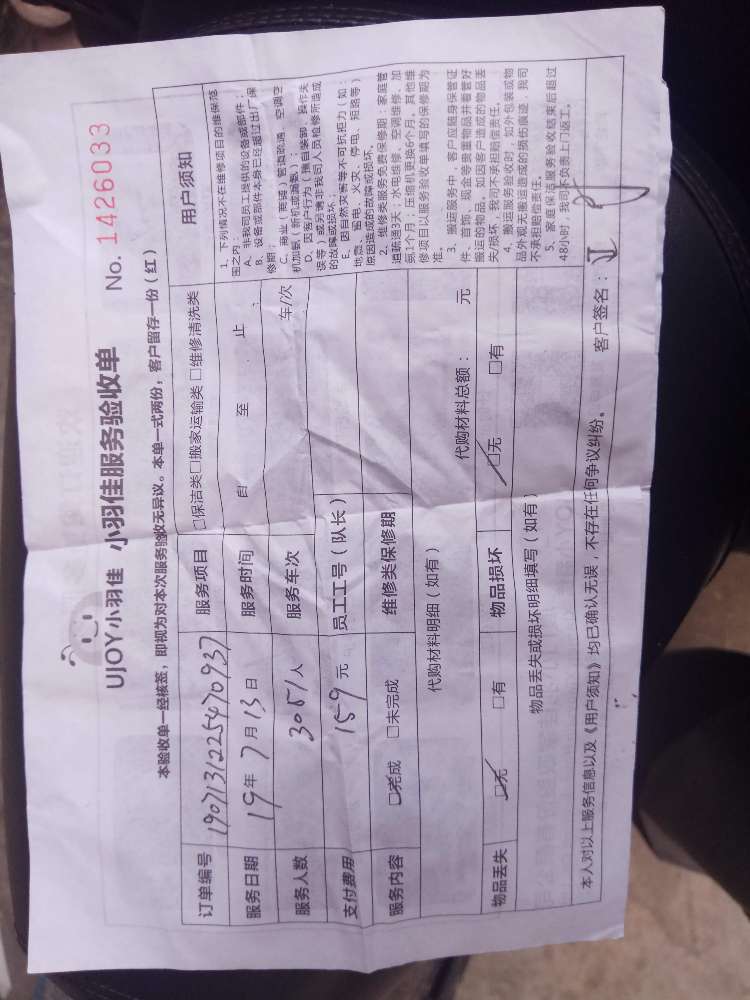 UJOY小羽佳 小羽佳服务验收单 No. 1426033
本验收单一经核签，即视为对本次服务验收无异议。本单一式两份，客户留存一份（红）
订单编号 1907131225470937 服务项目 □保洁类□搬家运输类 □维修清洗类
服务日期 19年 7月 13日 服务时间 自 至 止
服务人数 人 服务车次 车/次
支付费用 159元 员工工号（队长）
服务内容 □完成 □未完成 维修类保修期
代购材料明细（如有） 代购材料总额： 元
物品丢失 □无 □有 物品损坏 □无 □有
物品丢失或损坏明细填写（如有）
用户须知
1、下列情况不在维修项目的维保范
围之内：
A、非我司员工提供的设备或部件；
B、设备或部件本身已经超过出厂保
修期；
C、商业（商铺）管道疏通、空调空
机加氨（新机或漏氨）；
D、因客户行为（擅自装卸、操作失
误等）或另请非我司人员检修所造成
的故障或损坏；
E、因自然灾害等不可抗拒力（如：
地震、雷电、火灾、停电、短路等）
原因造成的故障或损坏。
2、维修类服务免费保修期：家庭管
道疏通3天；水电维修、空调维修、加
氨1个月；压缩机更换6个月。其他维
修项目以服务验收单填写的保修期为
准。
3、搬运服务中，客户应随身保管证
件、首饰、现金等贵重物品并看管好
搬运的物品。如因客户造成的物品丢
失/损坏，我司不承担赔偿责任。
4、搬运服务验收时，如外包装或物
品外观无搬运造成的损伤痕迹，我司
不承担赔偿责任。
5、家庭保洁服务验收结束后超过
48小时，我司不负责上门返工。
本人对以上服务信息以及《用户须知》均已确认无误，不存在任何争议纠纷。 客户签名：